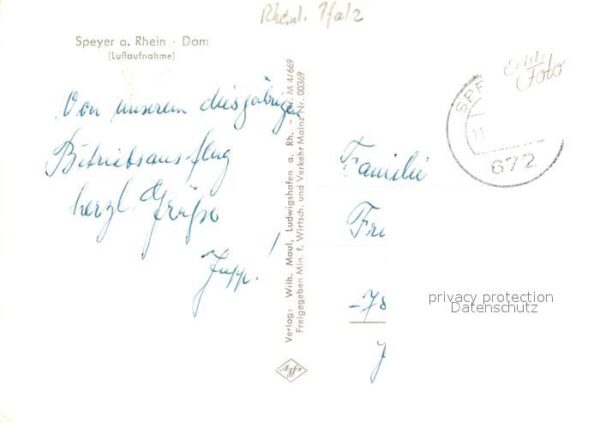 Rheinl. Pfalz
Speyer a. Rhein · Dom
(Luftaufnahme)
Echte Foto
SPE
672
Von unserem diesjährigen
Betriebsausflug
herzl. Grüße
Jupp!
Verlag: Wilh. Maul, Ludwigshafen a. Rh. - M 4/669
Freigegeben Min. f. Wirtsch. und Verkehr Mainz Nr. 00369
Familie
Fri
-78
J
privacy protection
Datenschutz
Agfa